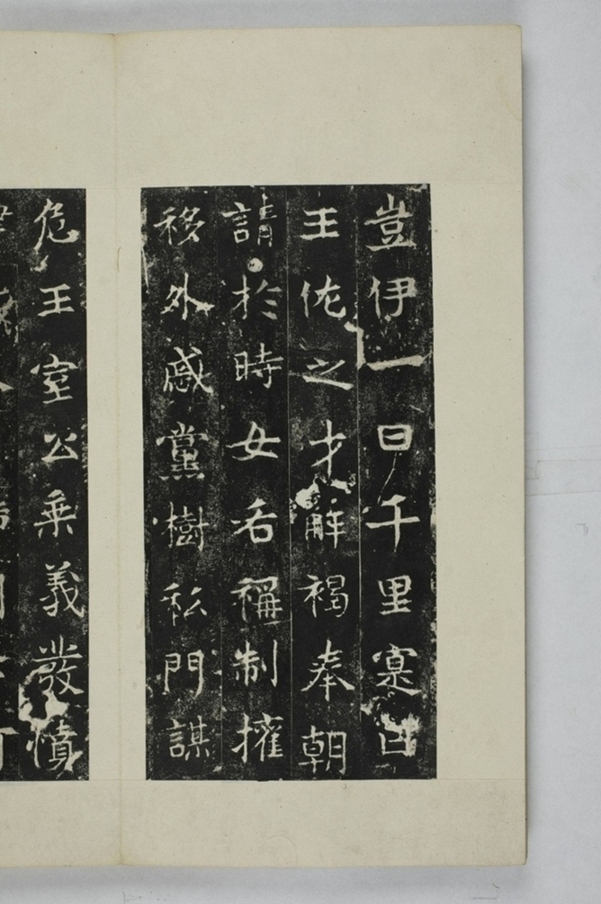 豈伊一日千里寔曰
王佐之才解褐奉朝
請於時女后稱制擁
移外戚黨樹私門謀
危王室公乗義發憤